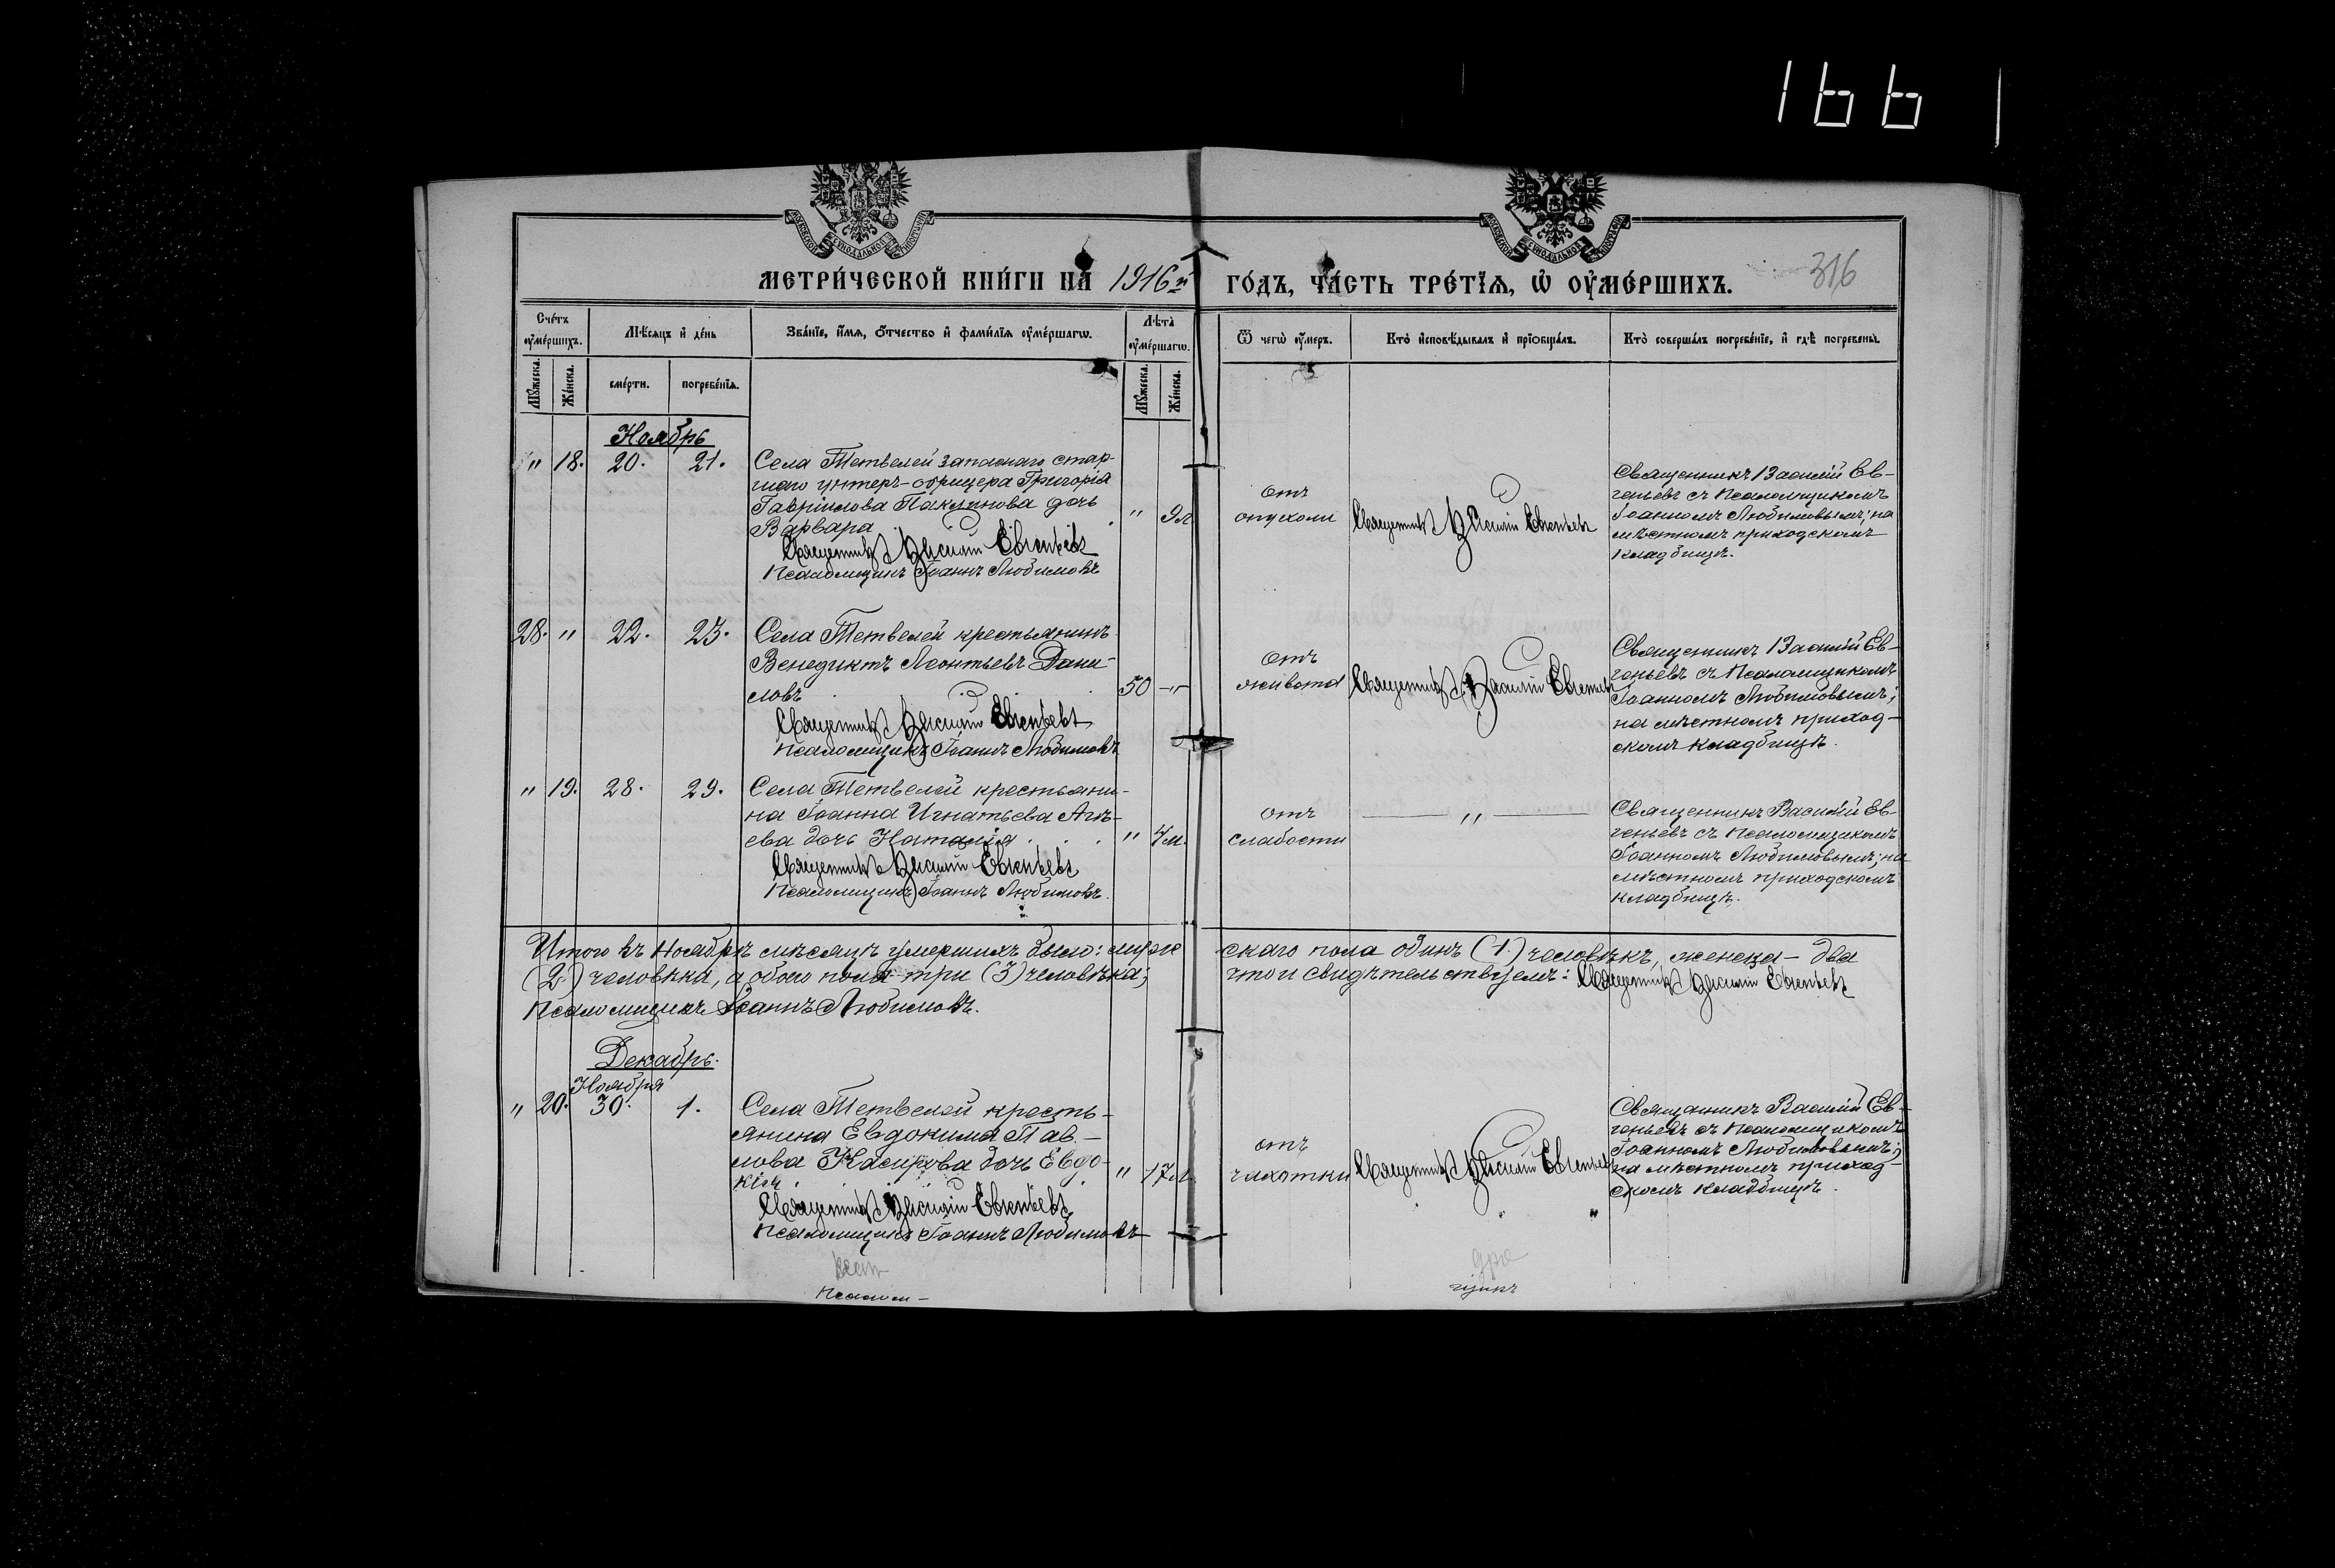 1661
МЕТРИ́ЧЕСКОЙ КНИ́ГИ НА 1916й ГО́ДЪ, ЧА́СТЬ ТРЕ́ТЇѦ, Ѡ ОУ҆МЕ́РШИХЪ.
316
Сче́тъ оу҆ме́ршихъ.
Мѣ́сяцъ и҆ де́нь
Зва́нїе, и҆́мѧ, ѻ҆́тчество и҆ фами́лїѧ оу҆ме́ршагѡ.
Лѣ́та оу҆ме́ршагѡ.
Ѿ чегѡ̀ оу҆́меръ.
Кто̀ и҆сповѣ́дывалъ и҆ прїѡбща́лъ.
Кто̀ соверша́лъ погребе́нїе, и҆ гдѣ̀ погребены̀.
Мꙋ́жеска.
Же́нска.
сме́рти.
погребе́нїѧ.
Мꙋ́жеска.
Же́нска.
Ноябрь
" 18. 20. 21.
Села Тетвелей запаснаго стар-
шаго унтеръ-офицера Григорія
Гавріилова Паклинова дочь
Варвара " 9 л.
Священникъ Василій Евгеньевъ
Псаломщикъ Іоаннъ Любимовъ
Отъ
опухоли
Священникъ Василій Евгеньевъ
Священникъ Василій Ев-
геньевъ съ Псаломщикомъ
Іоанномъ Любимовымъ; на
мѣстномъ приходскомъ
кладбищѣ.
28. " 22. 23.
Села Тетвелей крестьянинъ
Венедиктъ Леонтьевъ Дани-
ловъ 50 "
Священникъ Василій Евгеньевъ
Псаломщикъ Іоаннъ Любимовъ
Отъ
живота
Священникъ Василій Евгеньевъ
Священникъ Василій Ев-
геньевъ съ Псаломщикомъ
Іоанномъ Любимовымъ;
на мѣстномъ приход-
скомъ кладбищѣ.
" 19. 28. 29.
Села Тетвелей крестьяни-
на Іоанна Игнатьева Агѣ-
ева дочь Наталія " 4 м.
Священникъ Василій Евгеньевъ
Псаломщикъ Іоаннъ Любимовъ.
отъ
слабости
"
Священникъ Василій Ев-
геньевъ съ Псаломщикомъ
Іоанномъ Любимовымъ; на
мѣстномъ приходскомъ
кладбищѣ.
Итого въ Ноябрѣ мѣсяцѣ умершихъ было: муже скаго пола одинъ (1.) человѣкъ, женска – два
(2.) человѣка, а обоего пола три (3) человѣка; что и свидѣтельствуемъ: Священникъ Василій Евгеньевъ
Псаломщикъ Іоаннъ Любимовъ.
Декабрь.
Ноября
" 20. 30. 1.
Села Тетвелей кресть-
янина Евдокима Пав-
лова Касирова дочь Евдо-
кія " 17 л.
Священникъ Василій Евгеньевъ
Псаломщикъ Іоаннъ Любимовъ
отъ
чахотки
Священникъ Василій Евгеньевъ
Священникъ Василій Ев-
геньевъ съ Псаломщикомъ
Іоанномъ Любимовымъ;
на мѣстномъ приход-
скомъ кладбищѣ.
Псалом-
щикъ